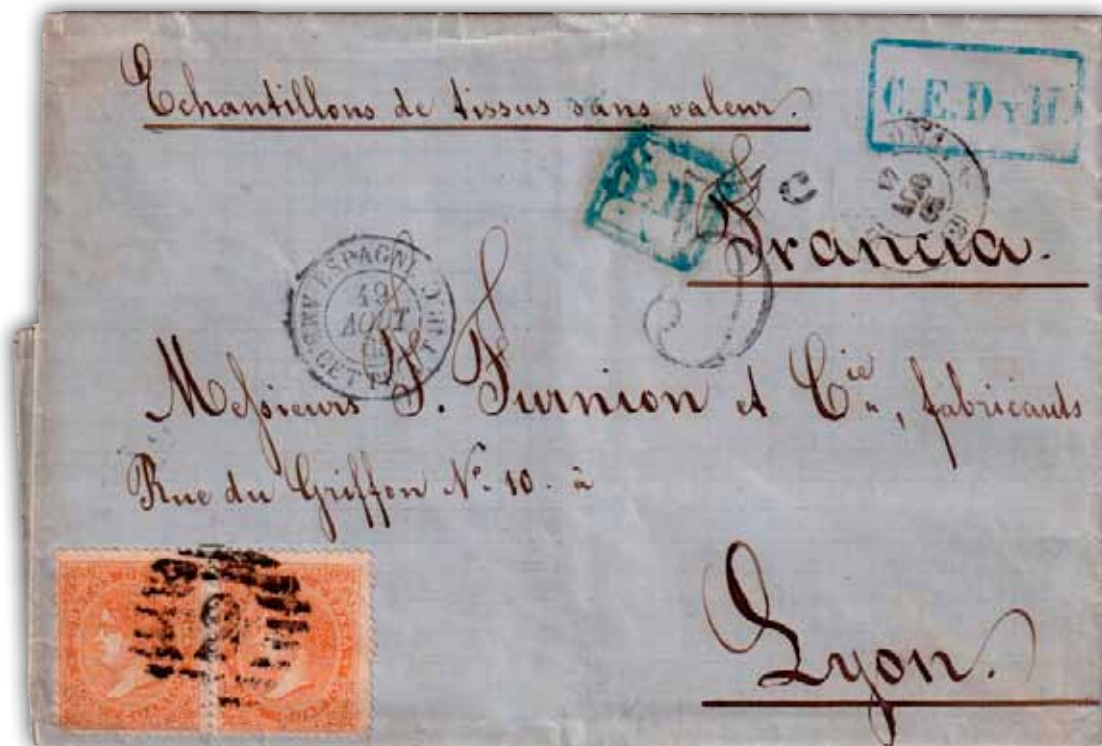 Echantillons de tissus sans valeur.
C.E.D y H.
P.D.
Francia.
ESPAGNE
19
AOUT
CETTE
Messieurs J. Furnion et Cie, fabricants
Rue du Griffon No. 10. à
2
Lyon.